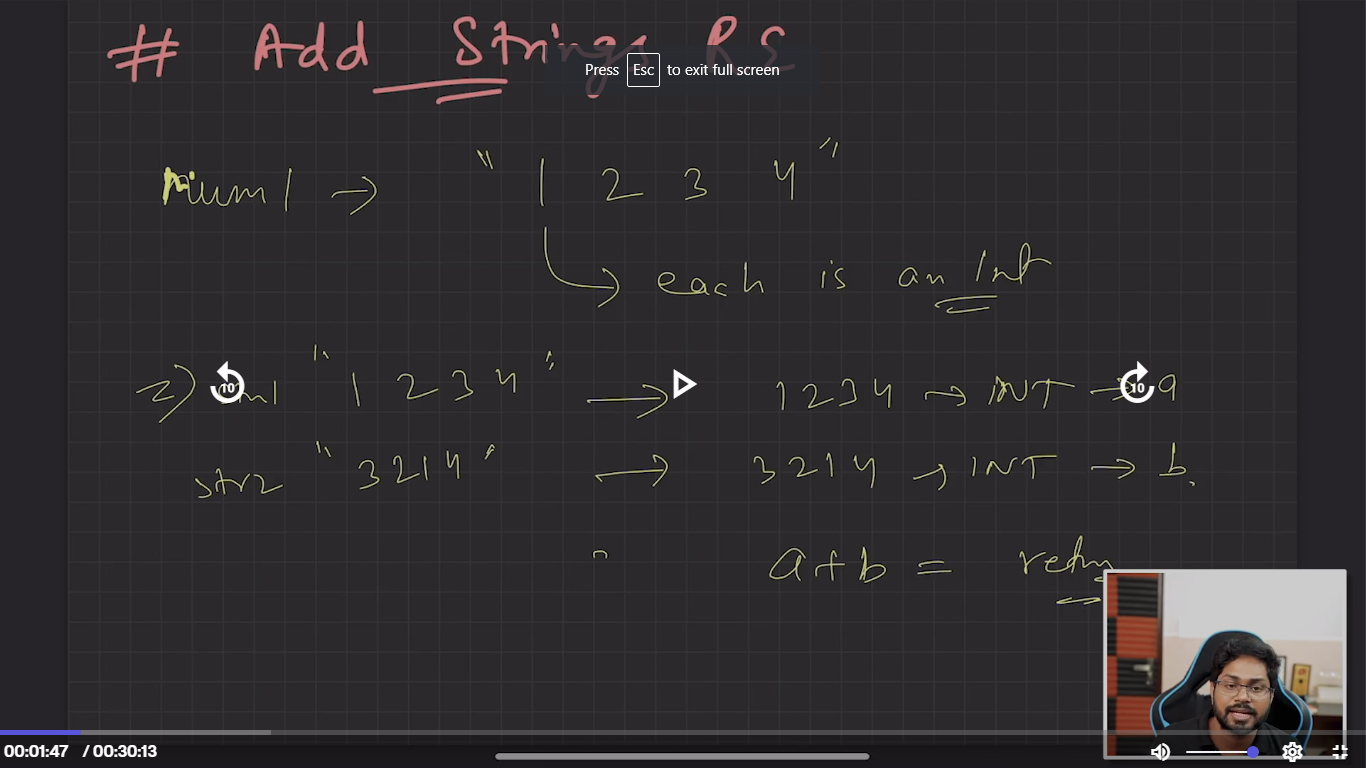 # Add Strings RE
Press Esc to exit full screen
Num1 → " 1 2 3 4 "
→ each is an Int
" 1 2 3 4 " → 1234 → INT → a
str2 " 3214 " → 3214 → INT → b.
a+b =
10
10
00:01:47 / 00:30:13